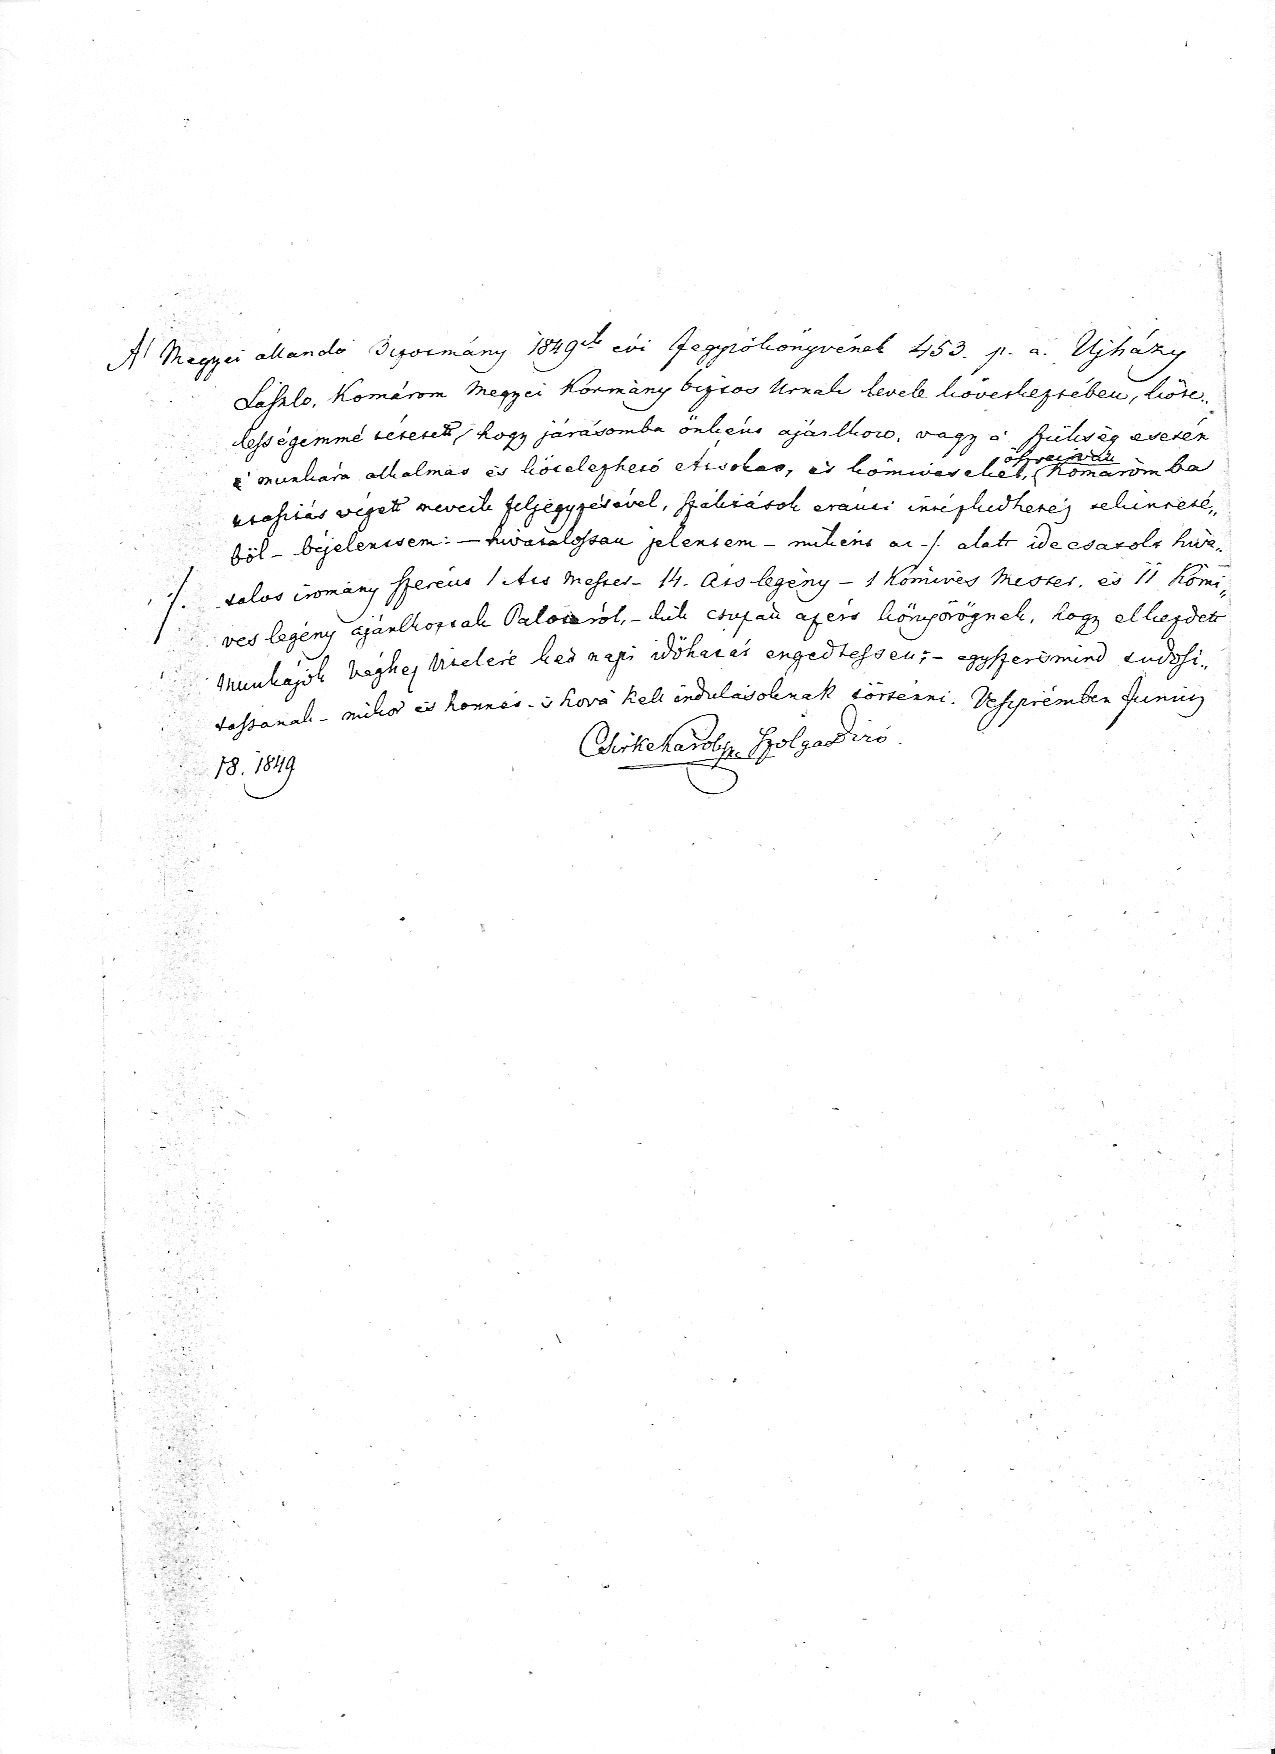 A' Megyei állandó Bizotmány 1849ik évi Jegyzőkönyvének 453. p. a. Ujházy
László, Komárom Megyei Kormány biztos Urnak levele következtében, köte„
lességemmé tétetett, hogy járásomba önként ajánlkozó, vagy a' szükség esetén
e' munkára alkalmas és kötelezhető Átsokat, és kőmiveseket, Komáromba
utasitás végett neveik feljegyzésével, szálitások eránti intézkedhetés tekinteté„
ből – béjelentsem: – hivatalossan jelentem – miként az ·/. alatt ide csatolt hiva„
·/. talos iromány szerént 1 Ats Mester – 14. Áts legény – 1 Kőmives Mester. és 11 Kőmi„
ves legény ajánlkoztak Palotáról, – kik csupán azért könyörögnek, hogy elkezdett
Munkájok véghez vitelére két napi időhatár engedtessen; – egyszersmind tudosi„
tassanak – mikor és honnét – s hová kell indulásoknak történni. Veszprémben Junius
18. 1849 Csirke Károly Szolgabiró.